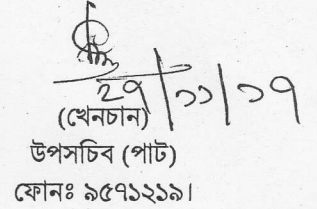 ২৭/১১/১৭
(খেনচান)
উপসচিব (পাট)
ফোনঃ ৯৫৭১২১৯।